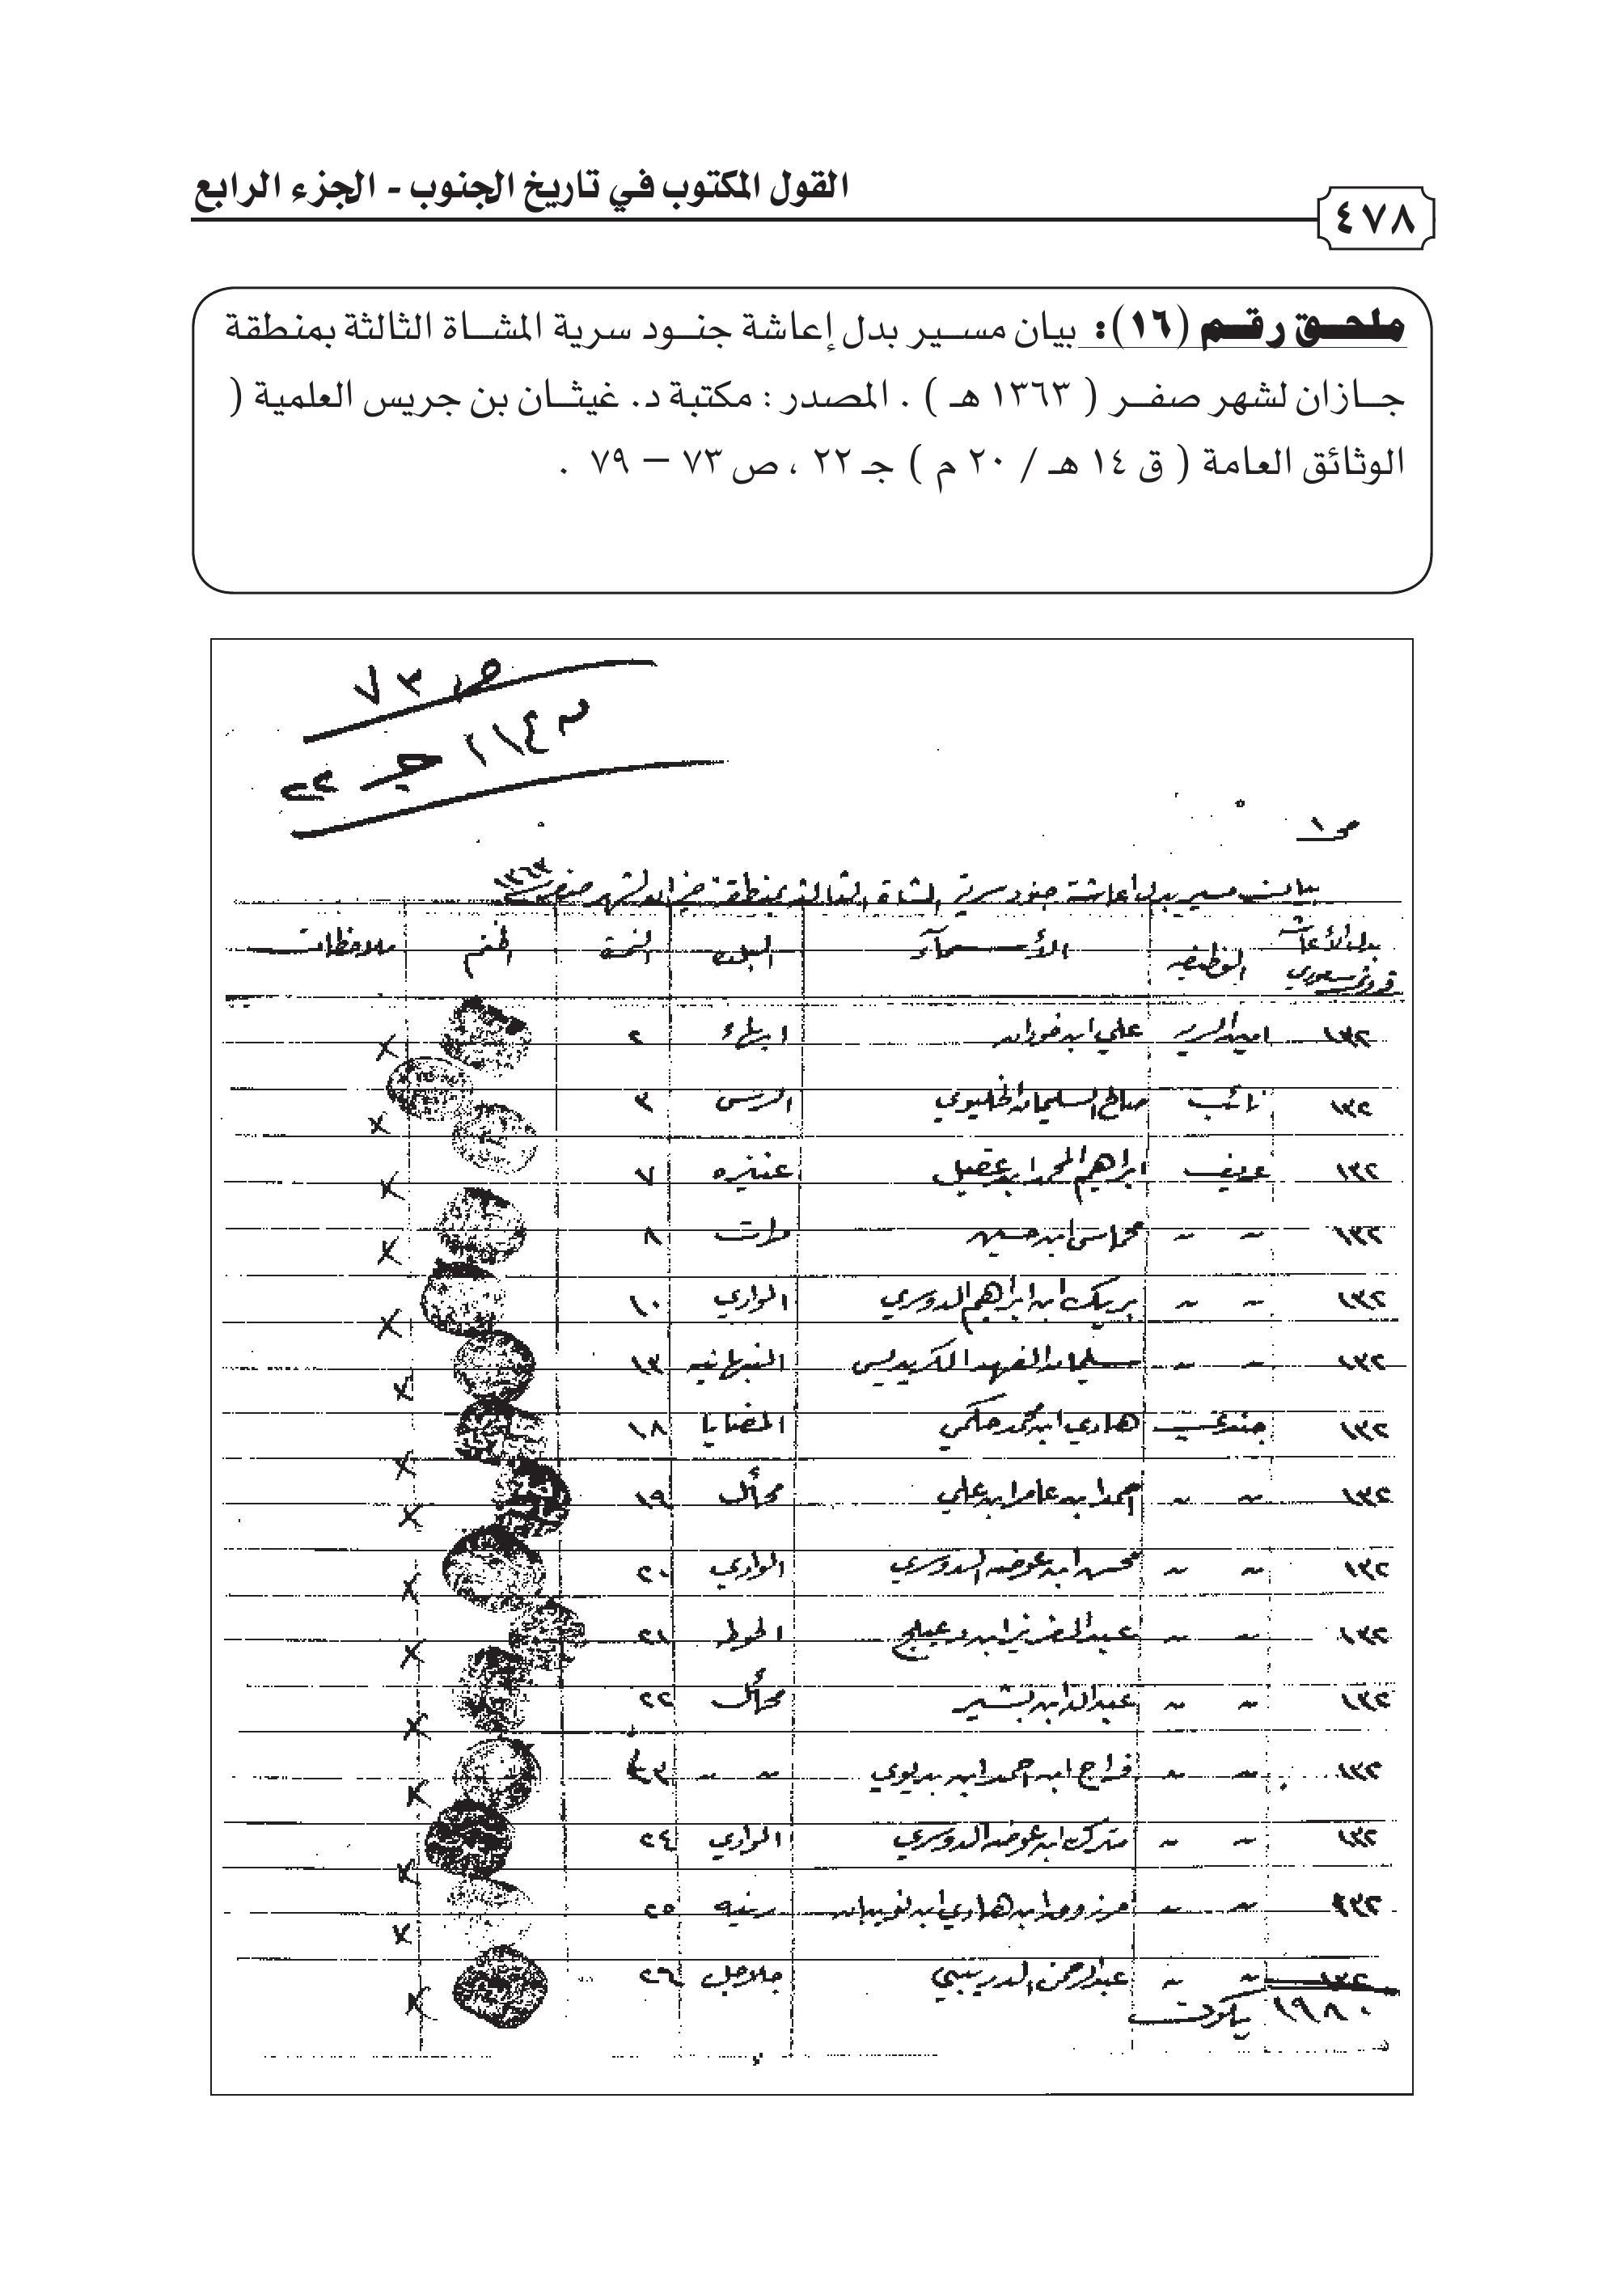 القول المكتوب في تاريخ الجنوب - الجزء الرابع
٤٧٨
ملحق رقم (١٦): بيان مسير بدل إعاشة جنود سرية المشاة الثالثة بمنطقة
جازان لشهر صفر ( ١٣٦٣ هـ ) . المصدر : مكتبة د. غيثان بن جريس العلمية (
الوثائق العامة ( ق ١٤ هـ / ٢٠ م ) جـ ٢٢ ، ص ٧٣ – ٧٩ .
ص ٧٣
جـ ٢٢
بيان مسير بدل اعاشة جنود سرية المشاة الثالثة بمنطقة جيزان لشهر صفر ١٣٦٣
بدل الأعاشه الوظيفه الأسماء البلد النمرة الختم ملاحظات
قروش سعودي
١٣٢ علي ابن ٢ x
١٣٢ نائب صالح السليمان الخليوي الرس ٣ x
١٣٢ عريف ابراهيم المحمد ابن عقيل عنيزه ٧ x
١٣٢ ~ ~ محماس ابن حسين ٨ x
١٣٢ ~ ~ بريك ابن ابراهيم الدوسري الوادي ١٠ x
١٣٢ ~ ~ سليمان الفهد النبهانيه ١٣ x
١٣٢ جندي هادي ابن محمد حكمي المضايا ١٨ x
١٣٢ ~ ~ احمد ابن عامر ابن علي محائل ١٩ x
١٣٢ ~ ~ محسن ابن عوضه الدوسري الوادي ٢٠ x
١٣٢ ~ ~ عبدالعزيز ابن الحوطه ٢١ x
١٣٢ ~ ~ عبدالله ابن بشير محائل ٢٢ x
١٣٢ ~ ~ فراج ابن احمد ابن بديوي ~ ~ ٢٣ x
١٣٢ ~ ~ مترك ابن عوضه الدوسري الوادي ٢٤ x
١٣٢ ~ ~ مرزوق ابن هادي ابن رنيه ٢٥ x
١٣٢ ~ ~ عبدالرحمن الدريبي جلاجل ٢٦ x
١٩٨٠